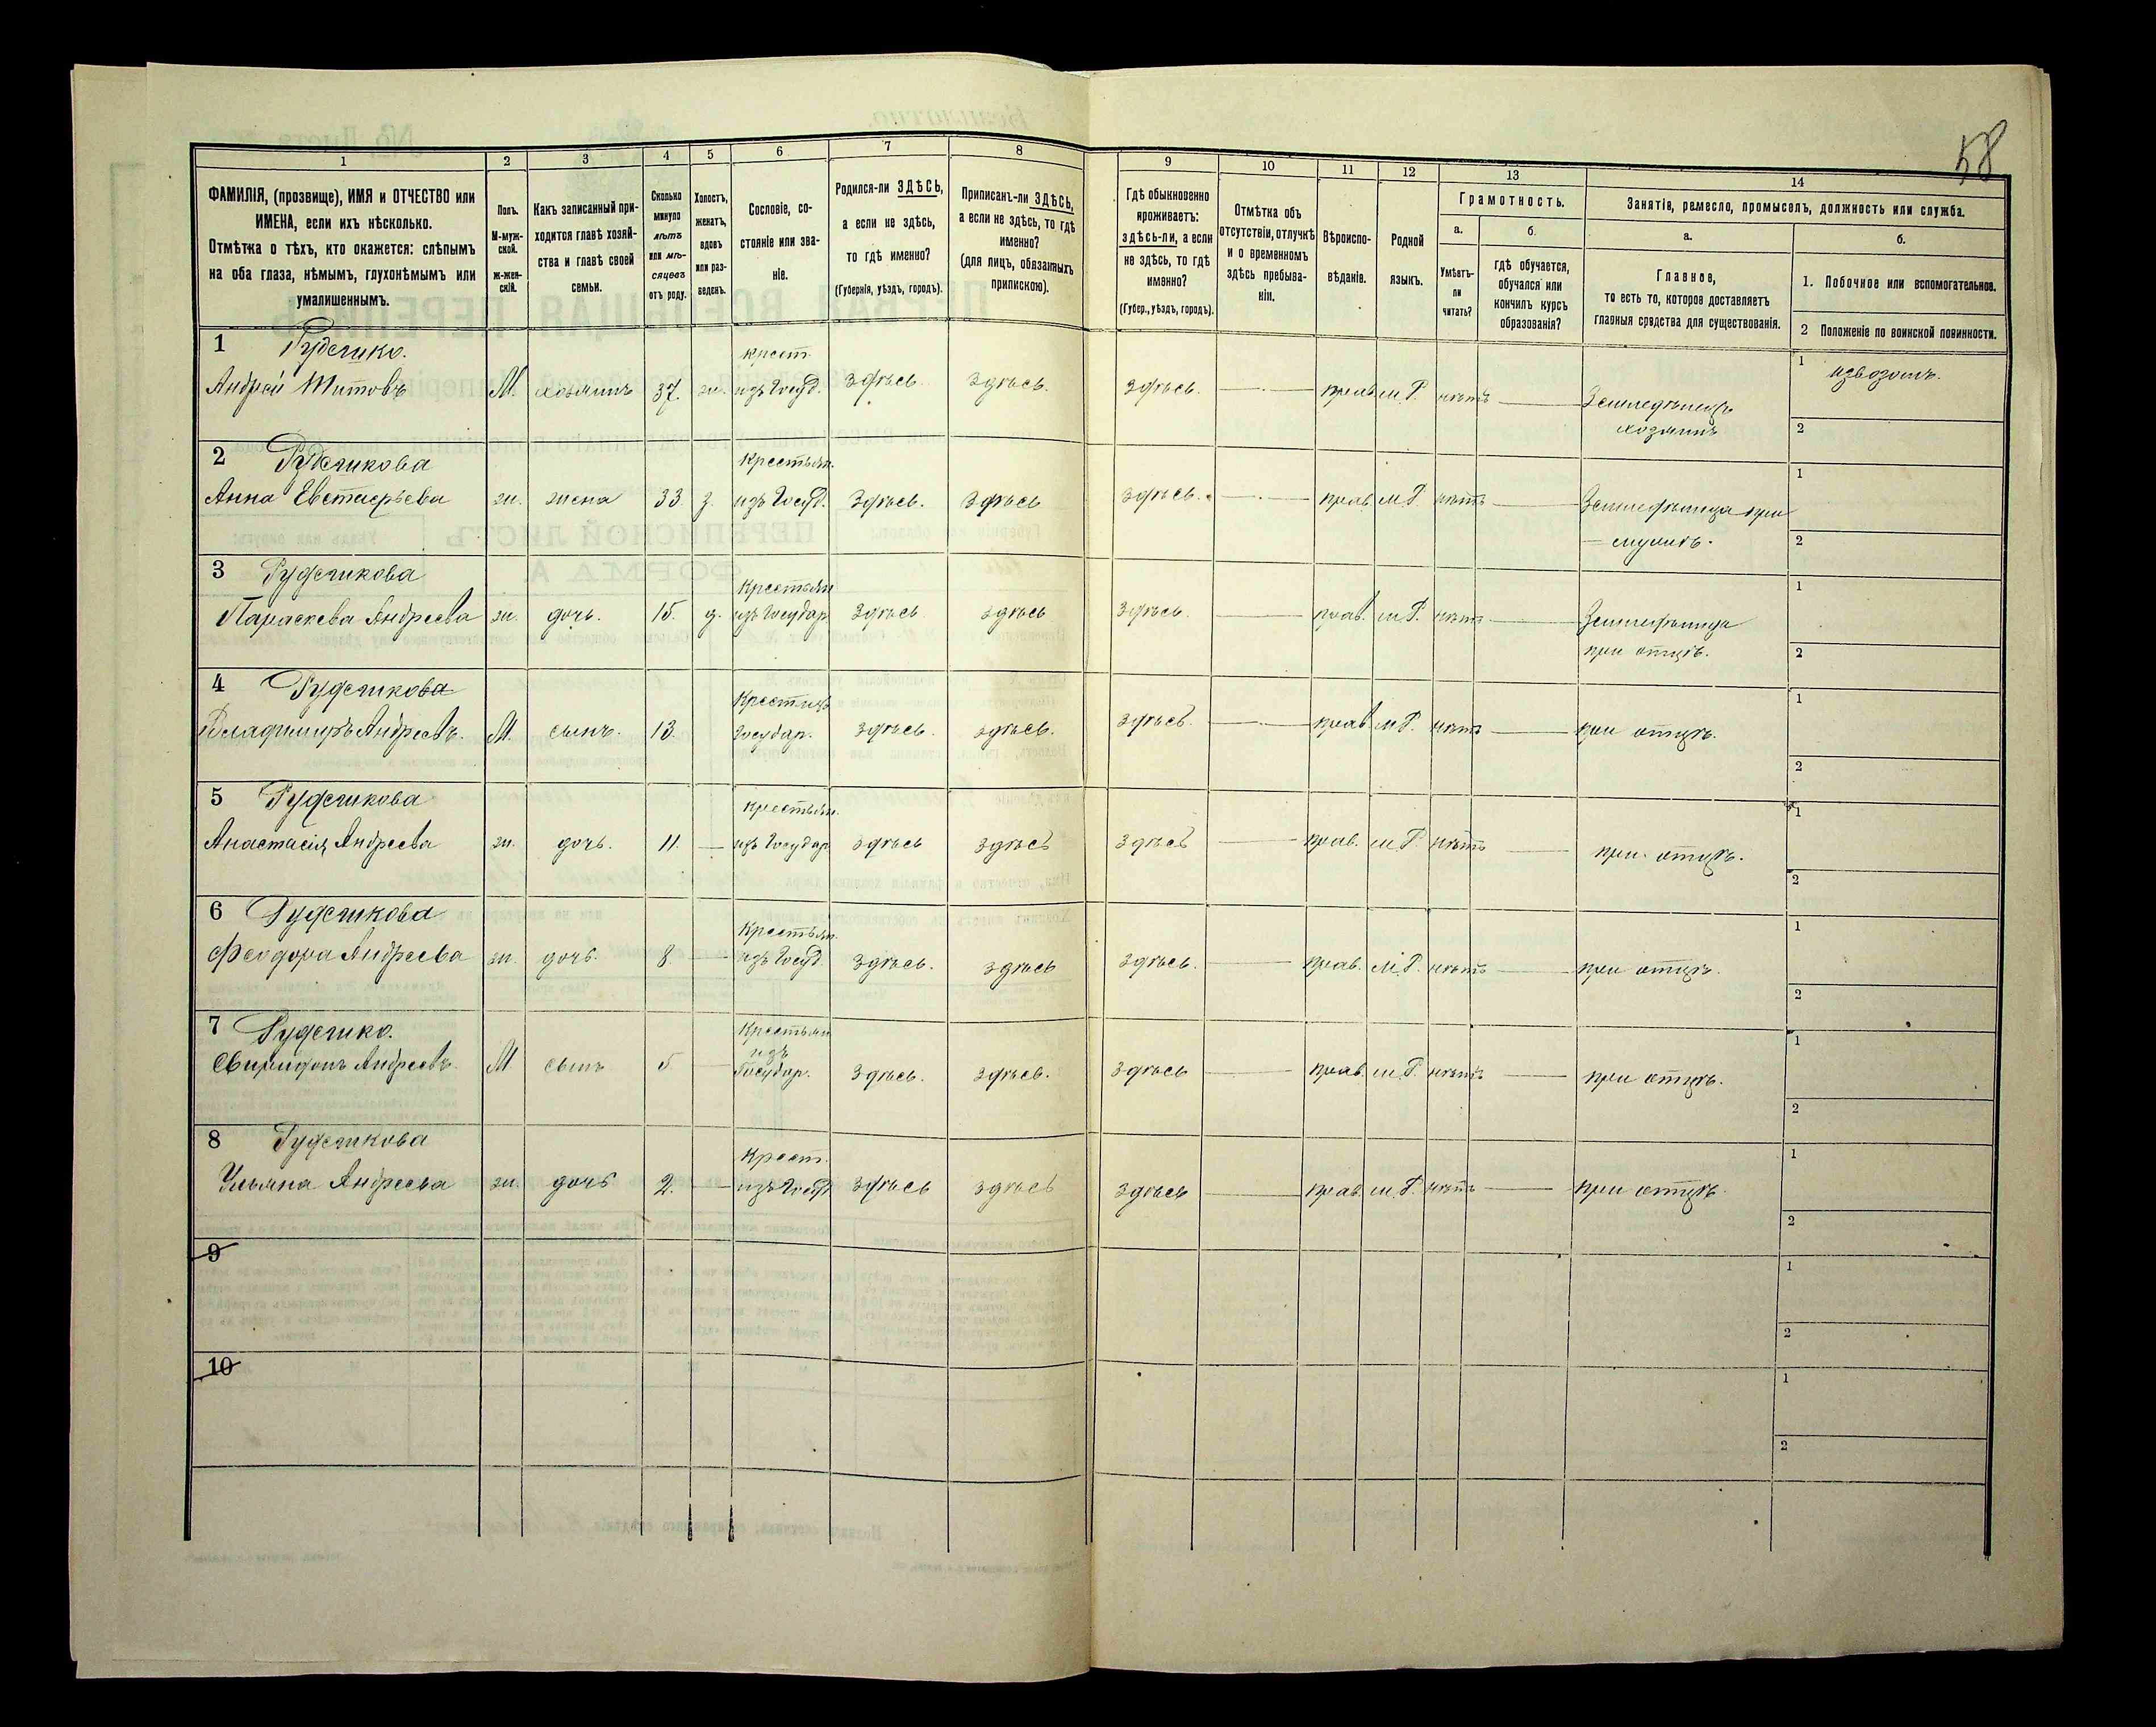 58
1 2 3 4 5 6 7 8 9 10 11 12 13 14
ФАМИЛІЯ, (прозвище), ИМЯ и ОТЧЕСТВО или
ИМЕНА, если ихъ нѣсколько.
Отмѣтка о тѣхъ, кто окажется: слѣпымъ
на оба глаза, нѣмымъ, глухонѣмымъ или
умалишеннымъ.
Полъ.
М-муж-
ской.
ж-жен-
скій.
Какъ записанный при-
ходится главѣ хозяй-
ства и главѣ своей
семьи.
Сколько
минуло
лѣтъ
или мѣ-
сяцевъ
отъ роду.
Холостъ,
женатъ,
вдовъ
или раз-
веденъ.
Сословіе, со-
стояніе или зва-
ніе.
Родился-ли ЗДѢСЬ,
а если не здѣсь,
то гдѣ именно?
(Губернія, уѣздъ, городъ).
Приписанъ-ли ЗДѢСЬ,
а если не здѣсь, то гдѣ
именно?
(для лицъ, обязанныхъ
припискою).
Гдѣ обыкновенно
проживаетъ:
здѣсь-ли, а если
не здѣсь, то гдѣ
именно?
(Губер., уѣздъ, городъ).
Отмѣтка объ
отсутствіи, отлучкѣ
и о временномъ
здѣсь пребыва-
ніи.
Вѣроиспо-
вѣданіе.
Родной
языкъ.
Грамотность.
а.
Умѣетъ-
ли
читать?
б.
гдѣ обучается,
обучался или
кончилъ курсъ
образованія?
Занятіе, ремесло, промыселъ, должность или служба.
а.
Главное,
то есть то, которое доставляетъ
главныя средства для существованія.
б.
1. Побочное или вспомогательное.
2 Положеніе по воинской повинности.
1 Рудечико. крест. 1 извозомъ.
Андрей Титовъ М. хозяинъ 37. ж. изъ Госуд. Здѣсь Здѣсь. Здѣсь. прав. м.Р. нѣтъ Земледѣлецъ
хозяинъ 2
2 Рудечикова Крестьян. 1
Анна Евстафьева ж. жена 33 з. изъ Госуд. Здѣсь. Здѣсь Здѣсь. прав. м.Р. нѣтъ Земледѣлица при
мужѣ. 2
3 Рудечикова Крестьян 1
Параскева Андреева ж. дочь. 15. д. изъ Государ. Здѣсь Здѣсь Здѣсь. прав. м.Р. нѣтъ Земледѣлица
при отцѣ. 2
4 Рудечикова Крест. изъ 1
Владимиръ Андреевъ. М. сынъ. 13. Государ. Здѣсь. Здѣсь. Здѣсь. прав м.Р. нѣтъ при отцѣ.
2
5 Рудечикова Крестьян. 1
Анастасія Андреева ж. дочь. 11. изъ Государ Здѣсь Здѣсь Здѣсь прав. м.Р. нѣтъ при отцѣ.
2
6 Рудечикова Крестьян. 1
Феодора Андреева ж. дочь. 8 изъ Госуд. Здѣсь. Здѣсь Здѣсь. прав. м.Р. нѣтъ при отцѣ.
2
7 Рудечико. Крестьян 1
изъ
Свиридонъ Андреевъ. М сынъ 5 Государ. Здѣсь. Здѣсь. Здѣсь прав. м.Р. нѣтъ при отцѣ.
2
8 Рудечикова Крест. 1
Ульяна Андреева ж. дочь 2. изъ Госуд Здѣсь Здѣсь Здѣсь прав. м.Р. нѣтъ при отцѣ.
2
9 1
2
10 1
2